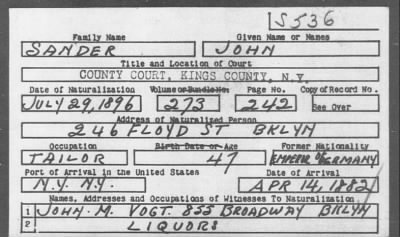 S536
Family Name Given Name or Names
SANDER JOHN
Title and Location of Court
COUNTY COURT, KINGS COUNTY, N.Y.
Date of Naturalization Volume or Bundle No. Page No. Copy of Record No.
JULY 29, 1896 273 242 See Over
Address of Naturalized Person
246 FLOYD ST BKLYN
Occupation Birth Date or Age Former Nationality
TAILOR 47 EMPEROR OF GERMANY
Port of Arrival in the United States Date of Arrival
N.Y. N.Y. APR 14, 1882
Names, Addresses and Occupations of Witnesses To Naturalization
1 JOHN. M. VOGT. 855 BROADWAY BKLYN
2 LIQUORS